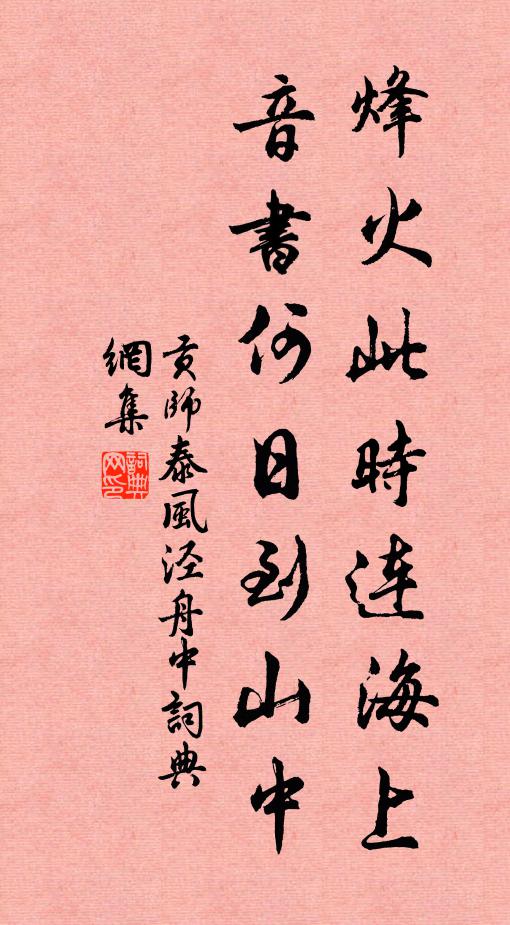 烽火此時連海上
音書何日到山中
貢師泰風涇舟中詞典
網集
詞典
网印